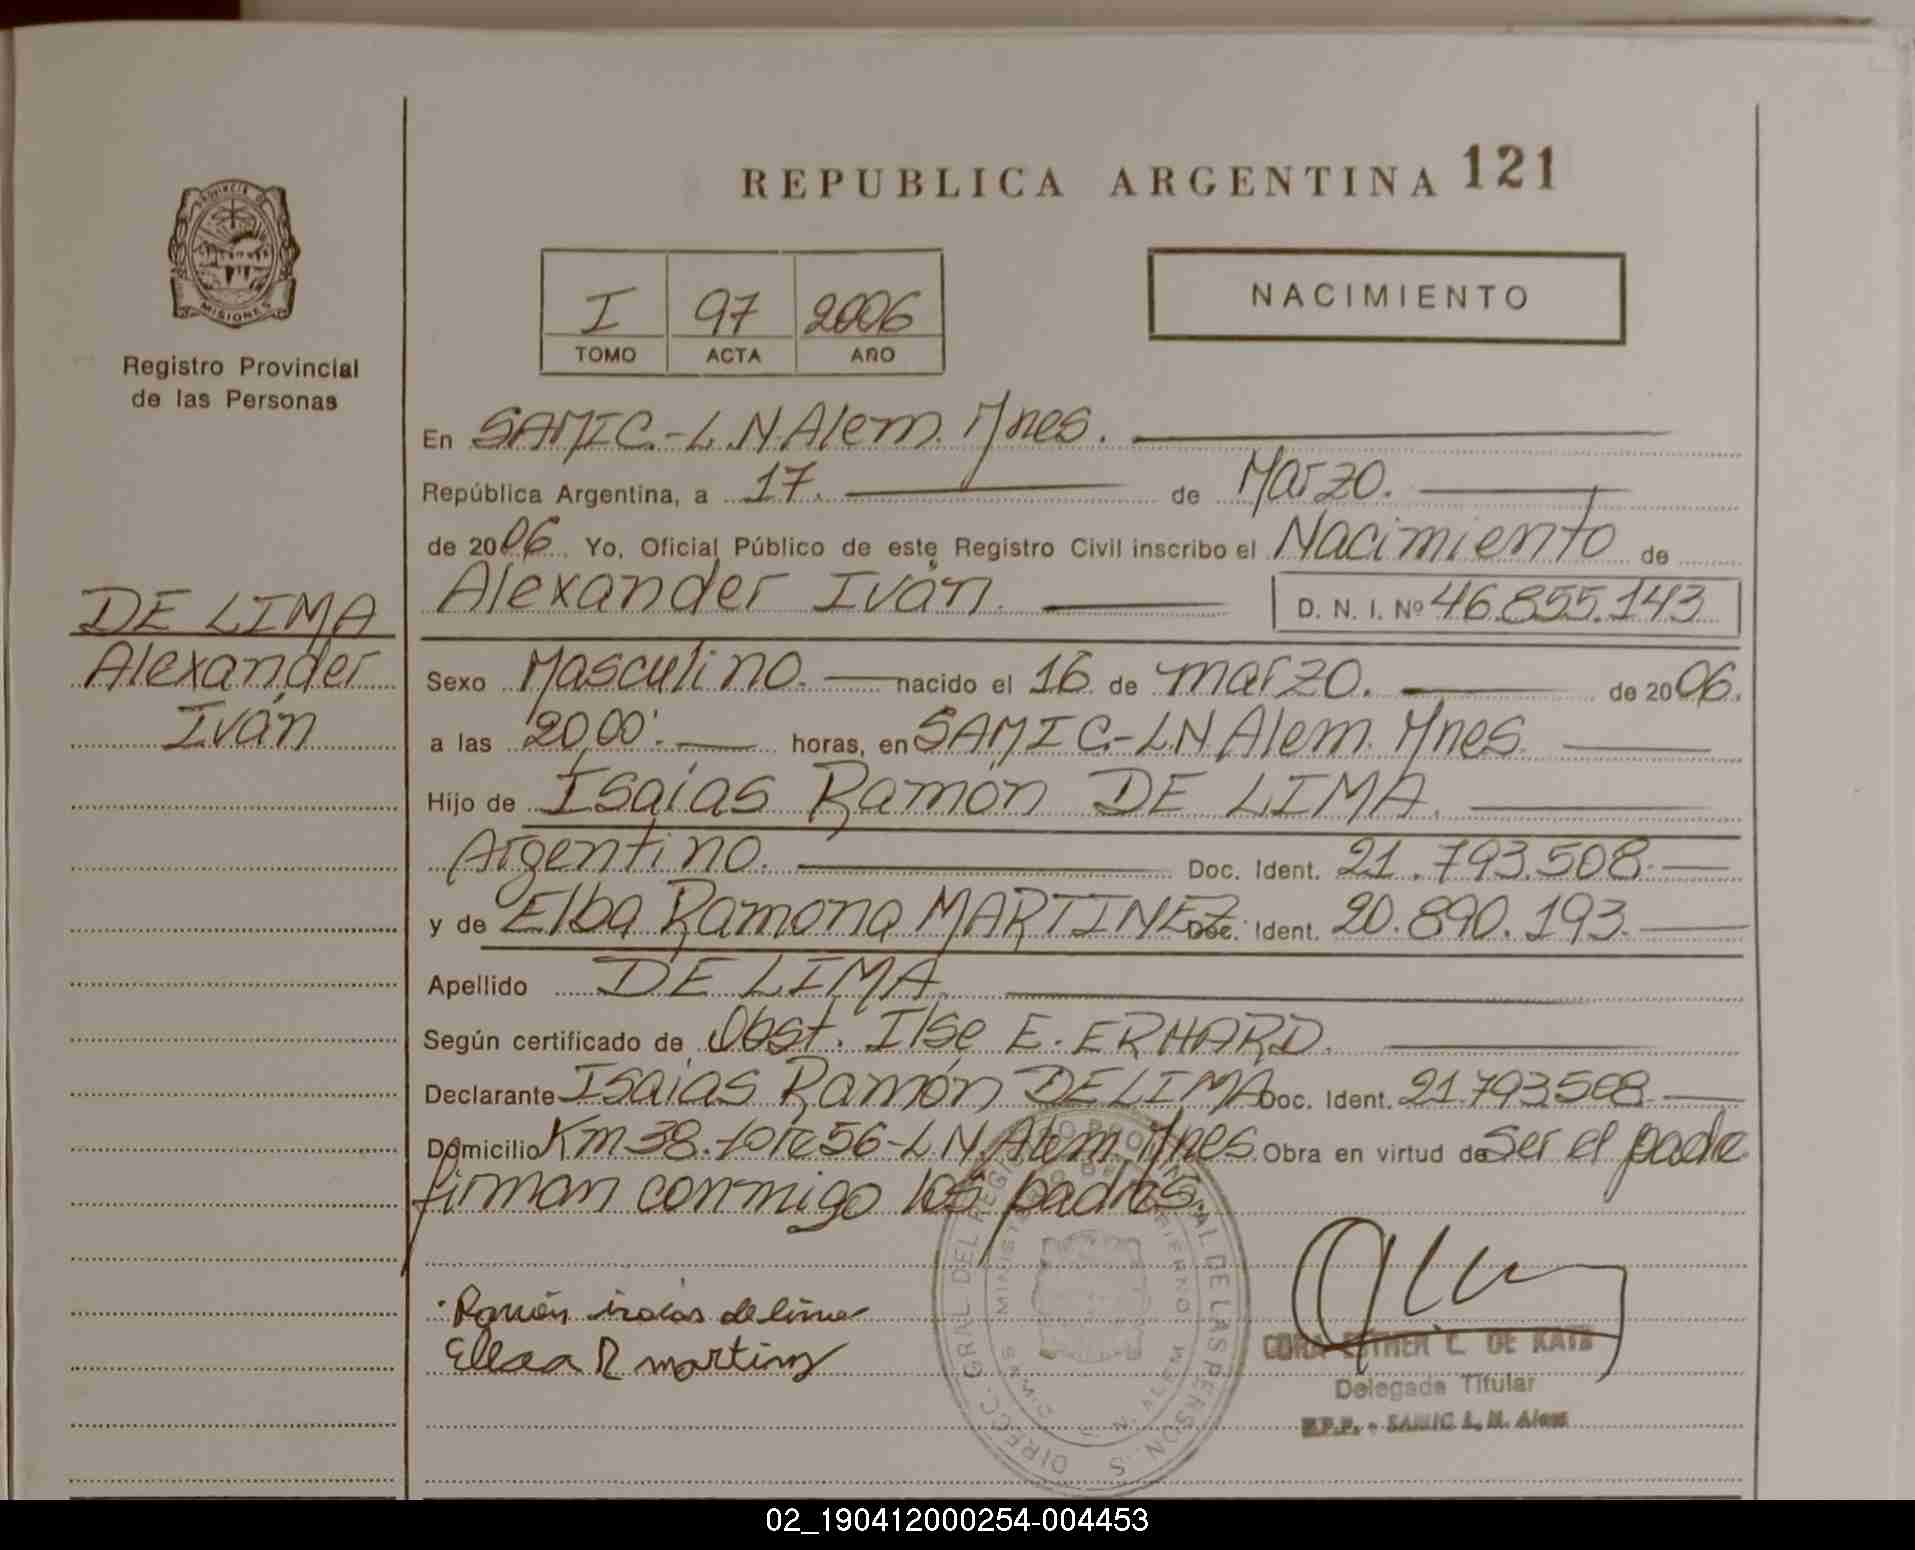 REPUBLICA ARGENTINA 121
PROVINCIA DE
MISIONES
Registro Provincial
de las Personas
I 97 2006
TOMO ACTA AÑO
NACIMIENTO
En SAMIC.-L.N.Alem. Mnes.
República Argentina, a 17. de Marzo.
de 2006 Yo, Oficial Público de este Registro Civil inscribo el Nacimiento de
Alexander Iván. D. N. I. Nº 46.855.143
DE LIMA
Alexander
Iván
Sexo Masculino. nacido el 16 de marzo. de 2006.
a las 20,00'. horas, en SAMIC.-L.N.Alem. Mnes.
Hijo de Isaías Ramón DE LIMA.
Argentino. Doc. Ident. 21.793.508.
y de Elba Ramona MARTINEZ Doc. Ident. 20.890.193.
Apellido DE LIMA.
Según certificado de Obst. Ilse E. ERHARD.
Declarante Isaías Ramón DE LIMA Doc. Ident. 21.793.508.
Domicilio Km 38.-lote 56-L N. Alem. Mnes. Obra en virtud de Ser el padre
firman conmigo los padres.
Ramón isaias de lima
R martinez
DIRECC. GRAL. DEL REGISTRO PROVINCIAL DE LAS PERSONAS
MINISTERIO DE GOBIERNO
L. N. ALEM
CORA ESTHER C. DE KATZ
Delegada Titular
R.P.P. - SAMIC L. N. Alem
02_190412000254-004453